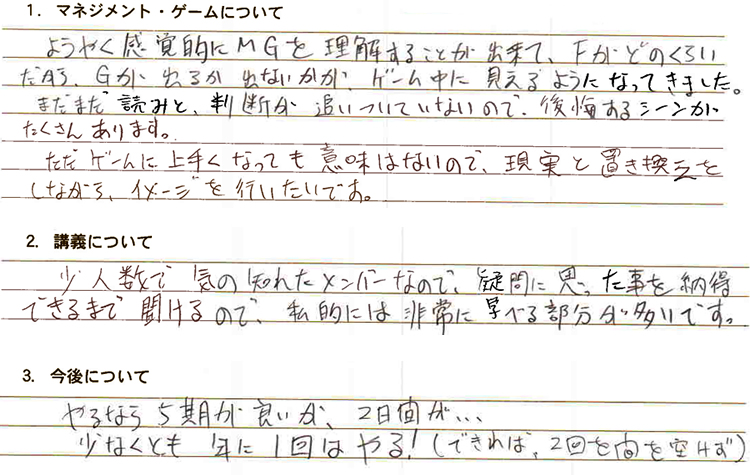 1. マネジメント・ゲームについて
ようやく感覚的にMGを理解することが出来て、Fがどのくらい
だから、Gが出るか出ないかが、ゲーム中に見えるようになってきました。
まだまだ読みと、判断が追いついていないので、後悔するシーンが
たくさんあります。
ただゲームに上手くなっても意味はないので、現実と置き換えを
しながら、イメージを行いたいです。
2. 講義について
少人数で気の知れたメンバーなので、疑問に思った事を納得
できるまで聞けるので、私的には非常に学べる部分が多いです。
3. 今後について
やるなら5期が良いが、2日間が...
少なくとも1年に1回はやる!(できれば、2回を間を空けず)